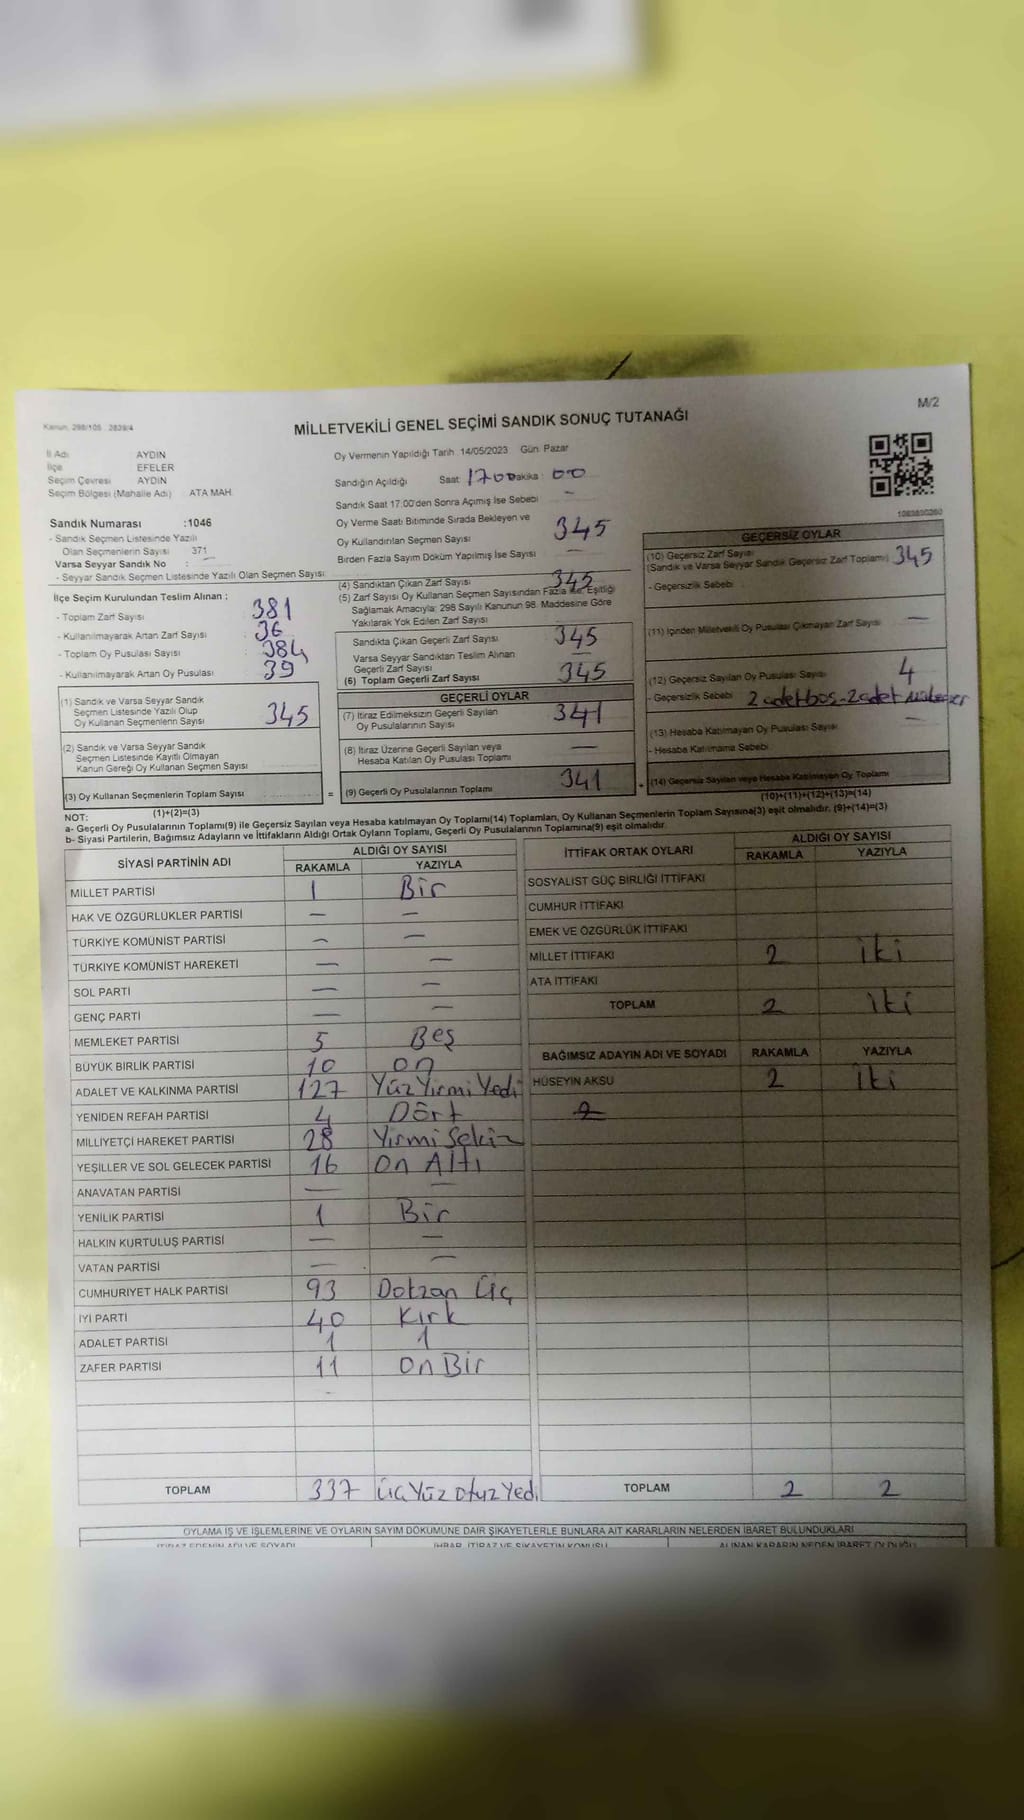 M/2
Kanun: 298/105 2839/4
MİLLETVEKİLİ GENEL SEÇİMİ SANDIK SONUÇ TUTANAĞI
İl Adı AYDIN
İlçe EFELER
Seçim Çevresi AYDIN
Seçim Bölgesi (Mahalle Adı) : ATA MAH.
Oy Vermenin Yapıldığı Tarih : 14/05/2023 Gün: Pazar
Sandığın Açıldığı Saat: 17 00 Dakika : 00
Sandık Saat 17:00'den Sonra Açımış İse Sebebi : —
Oy Verme Saati Bitiminde Sırada Bekleyen ve
Oy Kullandırılan Seçmen Sayısı 345
Birden Fazla Sayım Döküm Yapılmış İse Sayısı —
1083830260
Sandık Numarası :1046
- Sandık Seçmen Listesinde Yazılı
Olan Seçmenlerin Sayısı : 371
Varsa Seyyar Sandık No : —
- Seyyar Sandık Seçmen Listesinde Yazılı Olan Seçmen Sayısı:
İlçe Seçim Kurulundan Teslim Alınan :
- Toplam Zarf Sayısı : 381
- Kullanılmayarak Artan Zarf Sayısı : 36
- Toplam Oy Pusulası Sayısı : 384
- Kullanılmayarak Artan Oy Pusulası : 39
(1) Sandık ve Varsa Seyyar Sandık
Seçmen Listesinde Yazılı Olup
Oy Kullanan Seçmenlerin Sayısı 345
(2) Sandık ve Varsa Seyyar Sandık
Seçmen Listesinde Kayıtlı Olmayan
Kanun Gereği Oy Kullanan Seçmen Sayısı
(3) Oy Kullanan Seçmenlerin Toplam Sayısı
(1)+(2)=(3)
(4) Sandıktan Çıkan Zarf Sayısı 345
(5) Zarf Sayısı Oy Kullanan Seçmen Sayısından Fazla ise, Eşitliği
Sağlamak Amacıyla; 298 Sayılı Kanunun 98. Maddesine Göre
Yakılarak Yok Edilen Zarf Sayısı
Sandıkta Çıkan Geçerli Zarf Sayısı 345
Varsa Seyyar Sandıktan Teslim Alınan
Geçerli Zarf Sayısı —
(6) Toplam Geçerli Zarf Sayısı 345
GEÇERLİ OYLAR
(7) İtiraz Edilmeksizin Geçerli Sayılan
Oy Pusulalarının Sayısı 341
(8) İtiraz Üzerine Geçerli Sayılan veya
Hesaba Katılan Oy Pusulası Toplamı —
= (9) Geçerli Oy Pusulalarının Toplamı 341
GEÇERSİZ OYLAR
(10) Geçersiz Zarf Sayısı
(Sandık ve Varsa Seyyar Sandık Geçersiz Zarf Toplamı) 345
- Geçersizlik Sebebi :
(11) İçinden Milletvekili Oy Pusulası Çıkmayan Zarf Sayısı —
(12) Geçersiz Sayılan Oy Pusulası Sayısı 4
- Geçersizlik Sebebi 2 adet boş - 2 adet
(13) Hesaba Katılmayan Oy Pusulası Sayısı —
- Hesaba Katılmama Sebebi
+ (14) Geçersiz Sayılan veya Hesaba Katılmayan Oy Toplamı
(10)+(11)+(12)+(13)=(14)
NOT:
a- Geçerli Oy Pusulalarının Toplamı(9) ile Geçersiz Sayılan veya Hesaba katılmayan Oy Toplamı(14) Toplamları, Oy Kullanan Seçmenlerin Toplam Sayısına(3) eşit olmalıdır. (9)+(14)=(3)
b- Siyasi Partilerin, Bağımsız Adayların ve İttifakların Aldığı Ortak Oyların Toplamı, Geçerli Oy Pusulalarının Toplamına(9) eşit olmalıdır.
SİYASİ PARTİNİN ADI ALDIĞI OY SAYISI
RAKAMLA YAZIYLA
MİLLET PARTİSİ 1 Bir
HAK VE ÖZGÜRLÜKLER PARTİSİ — —
TÜRKİYE KOMÜNİST PARTİSİ — —
TÜRKİYE KOMÜNİST HAREKETİ — —
SOL PARTİ — —
GENÇ PARTİ — —
MEMLEKET PARTİSİ 5 Beş
BÜYÜK BİRLİK PARTİSİ 10 on
ADALET VE KALKINMA PARTİSİ 127 Yüz Yirmi Yedi
YENİDEN REFAH PARTİSİ 4 Dört
MİLLİYETÇİ HAREKET PARTİSİ 28 Yirmi Sekiz
YEŞİLLER VE SOL GELECEK PARTİSİ 16 On Altı
ANAVATAN PARTİSİ — —
YENİLİK PARTİSİ 1 Bir
HALKIN KURTULUŞ PARTİSİ — —
VATAN PARTİSİ — —
CUMHURİYET HALK PARTİSİ 93 Dokzan Üç
İYİ PARTİ 40 Kırk
ADALET PARTİSİ 1 1
ZAFER PARTİSİ 11 on Bir
TOPLAM 337 üç Yüz otuz Yedi
İTTİFAK ORTAK OYLARI ALDIĞI OY SAYISI
RAKAMLA YAZIYLA
SOSYALİST GÜÇ BİRLİĞİ İTTİFAKI
CUMHUR İTTİFAKI
EMEK VE ÖZGÜRLÜK İTTİFAKI
MİLLET İTTİFAKI 2 iki
ATA İTTİFAKI
TOPLAM 2 iki
BAĞIMSIZ ADAYIN ADI VE SOYADI RAKAMLA YAZIYLA
HÜSEYİN AKSU 2 İki
2
TOPLAM 2 2
OYLAMA İŞ VE İŞLEMLERİNE VE OYLARIN SAYIM DÖKÜMÜNE DAİR ŞİKAYETLERLE BUNLARA AİT KARARLARIN NELERDEN İBARET BULUNDUKLARI
İTİRAZ EDENİN ADI VE SOYADI İHBAR, İTİRAZ VE ŞİKAYETİN KONUSU ALINAN KARARIN NEDEN İBARET OLDUĞU